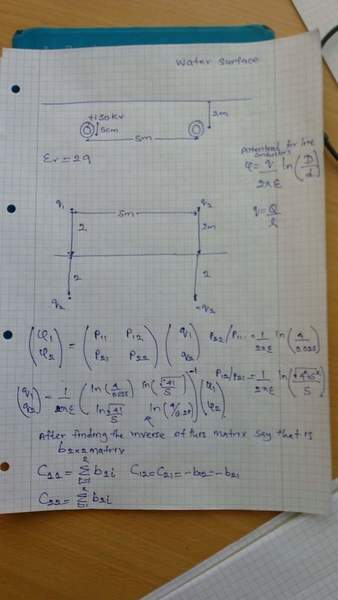 Water Surface
2m
+150kv
5cm
5m
εr = 29
Potential for line
conductors
φ = q/2πε ln(D/d)
q = Q/l
q1 q2
5m
2 2m
2 2
-q2
(φ1 φ2) = (P11 P12 P21 P22) (q1 q2)
P22/P11 = 1/2πε ln(4/0.025)
P12/P21 = 1/2πε
(q1 q2) = 1/2πε (ln(4/0.025) ln(√41/5) ln √41/5 ln(4/0.025))^-1 (φ1 φ2)
After finding the inverse of this matrix say that is
b 2x2 matrix
C11 = Σ b1i C12 = C21 = -b12 = -b21
C22 = Σ b2i